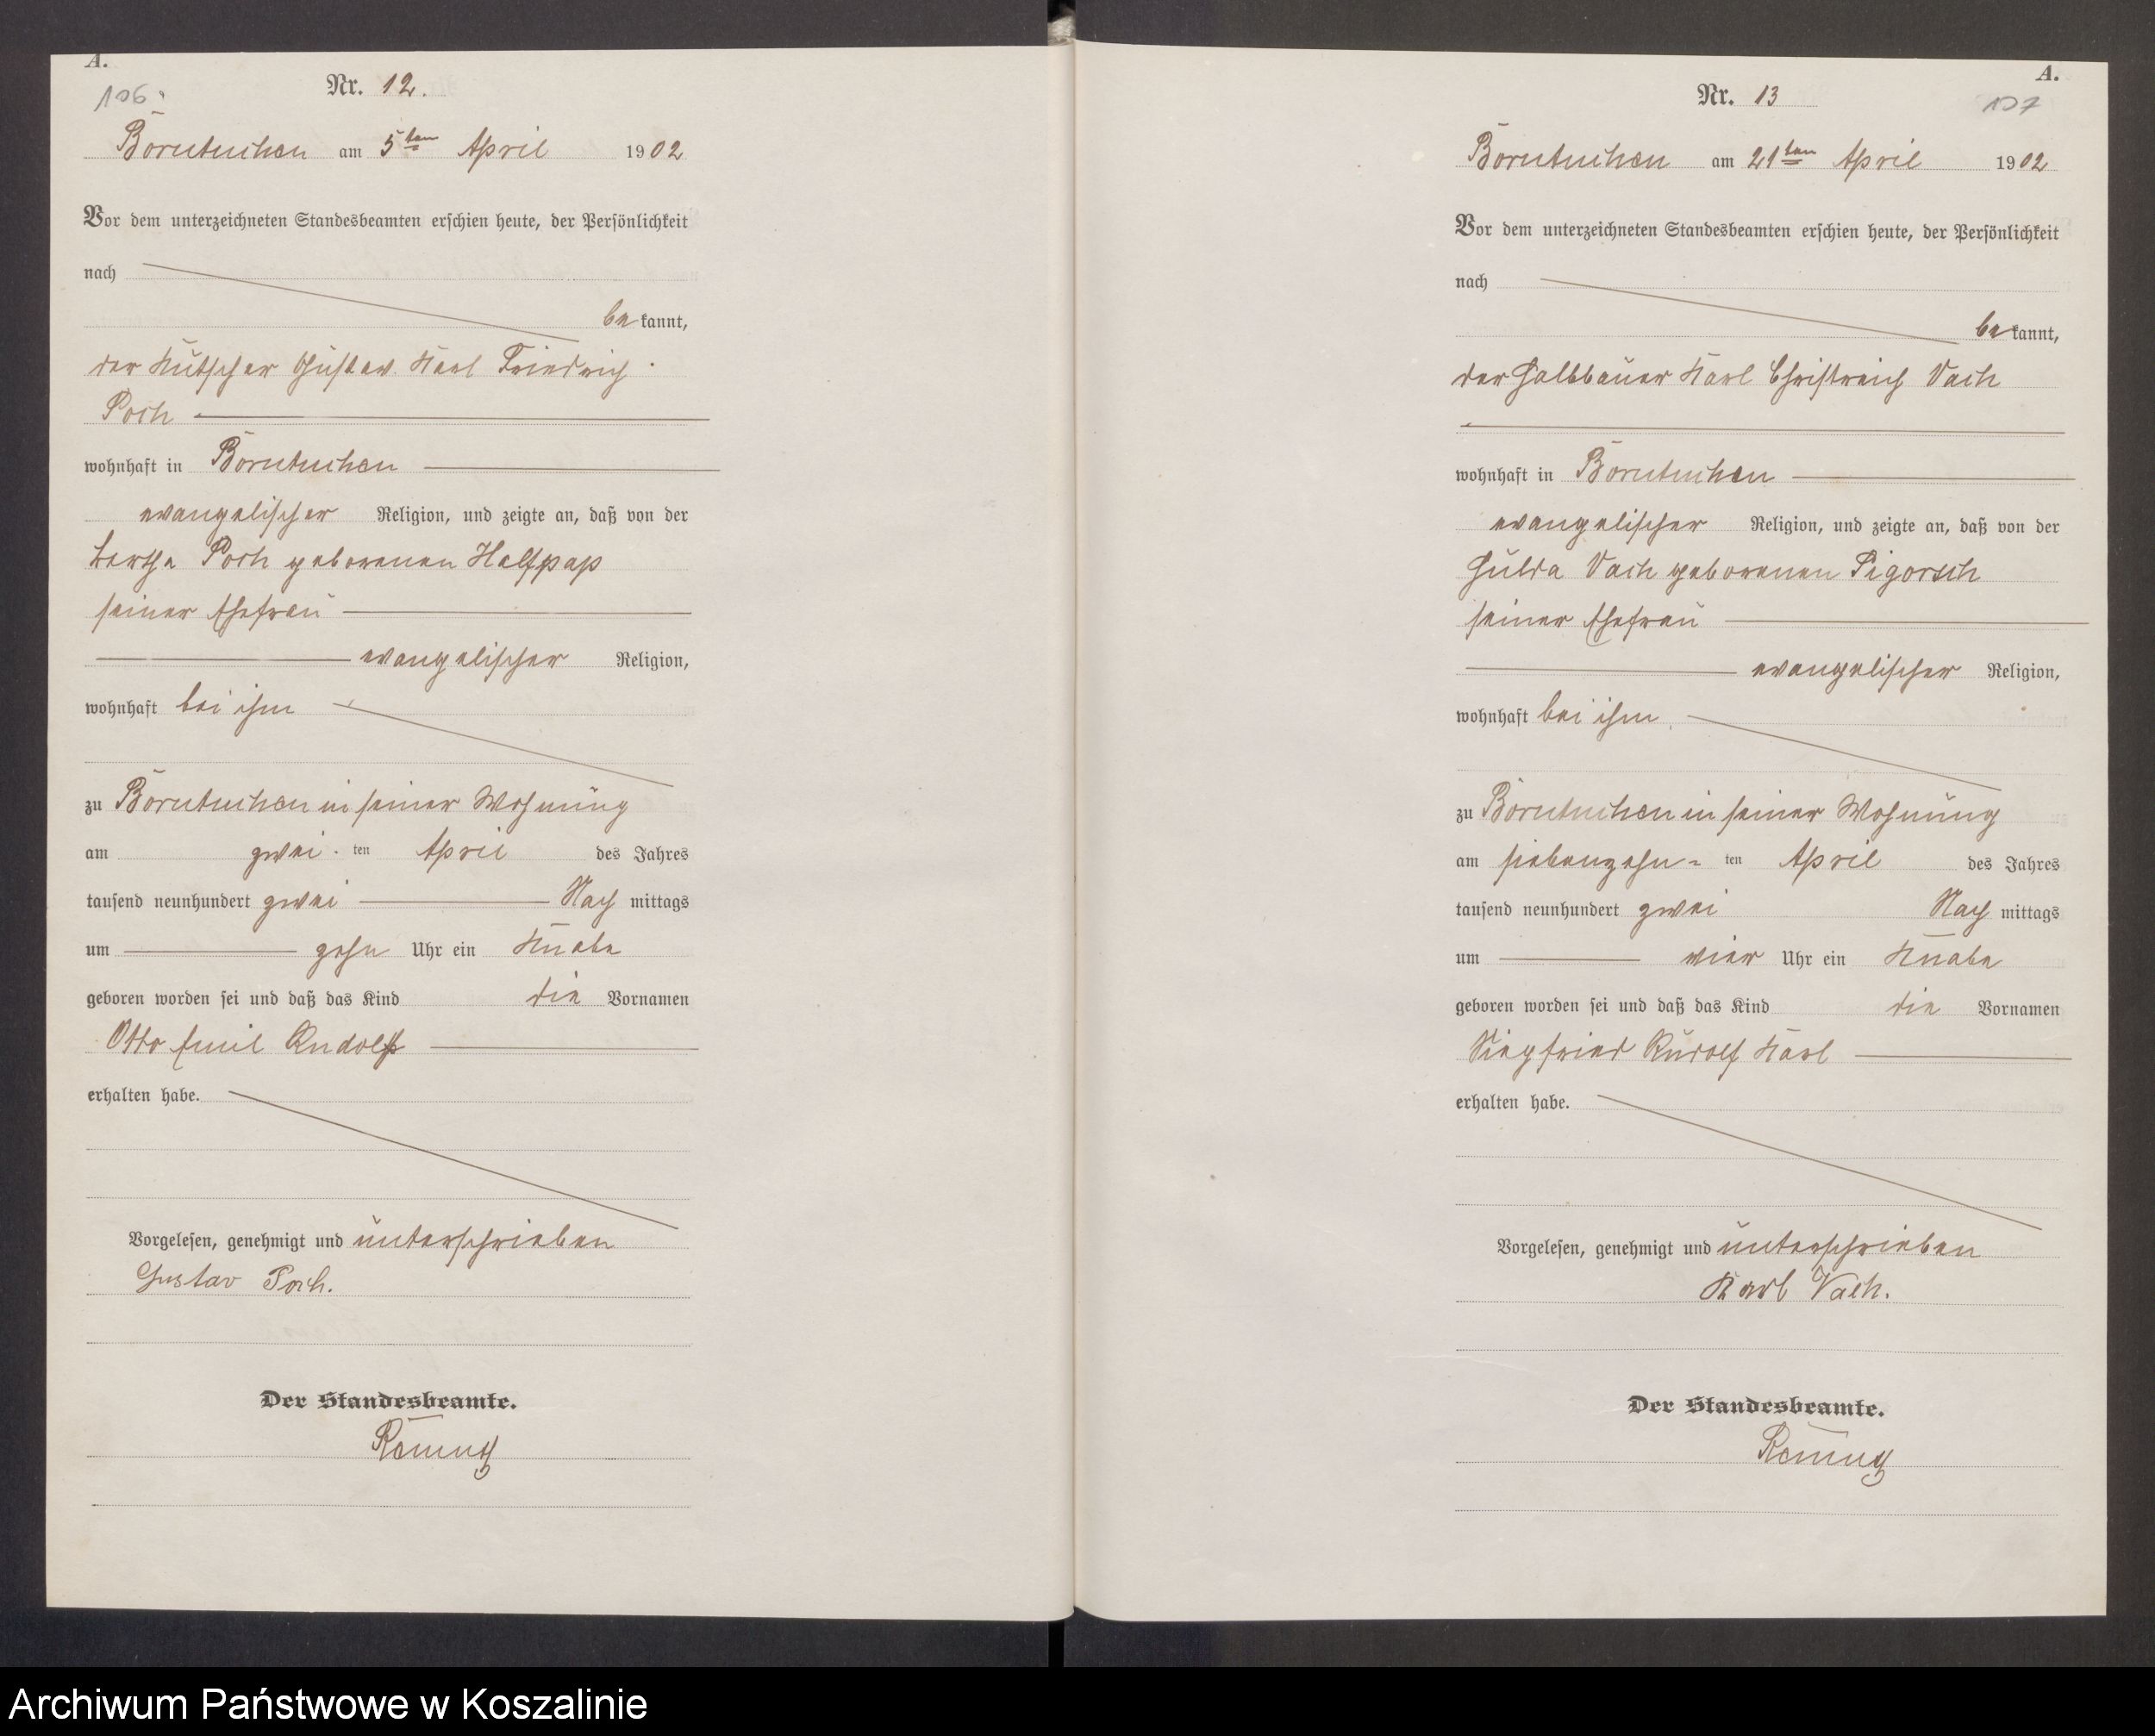 A.
106.
Nr. 12.
Borntuchen am 5ten April 1902
Vor dem unterzeichneten Standesbeamten erschien heute, der Persönlichkeit
nach
bekannt,
der Kutscher Gustav Karl Friedrich
Poch
wohnhaft in Borntuchen
evangelischer Religion, und zeigte an, daß von der
Bertha Poch geborenen Halfpap
seiner Ehefrau
evangelischer Religion,
wohnhaft bei ihm
zu Borntuchen in seiner Wohnung
am zwei-ten April des Jahres
tausend neunhundert zwei Nachmittags
um zehn Uhr ein Knabe
geboren worden sei und daß das Kind die Vornamen
Otto Emil Rudolf
erhalten habe.
Vorgelesen, genehmigt und unterschrieben
Gustav Poch.
Der Standesbeamte.
A.
107
Nr. 13
Borntuchen am 21ten April 1902
Vor dem unterzeichneten Standesbeamten erschien heute, der Persönlichkeit
nach
bekannt,
der Halbbauer Karl Christreich Vach
wohnhaft in Borntuchen
evangelischer Religion, und zeigte an, daß von der
Hulda Vach geborenen Pigorsch
seiner Ehefrau
evangelischer Religion,
wohnhaft bei ihm
zu Borntuchen in seiner Wohnung
am siebenzehn-ten April des Jahres
tausend neunhundert zwei Nachmittags
um vier Uhr ein Knabe
geboren worden sei und daß das Kind die Vornamen
Siegfried Rudolf Karl
erhalten habe.
Vorgelesen, genehmigt und unterschrieben
Karl Vach.
Der Standesbeamte.
Archiwum Państwowe w Koszalinie